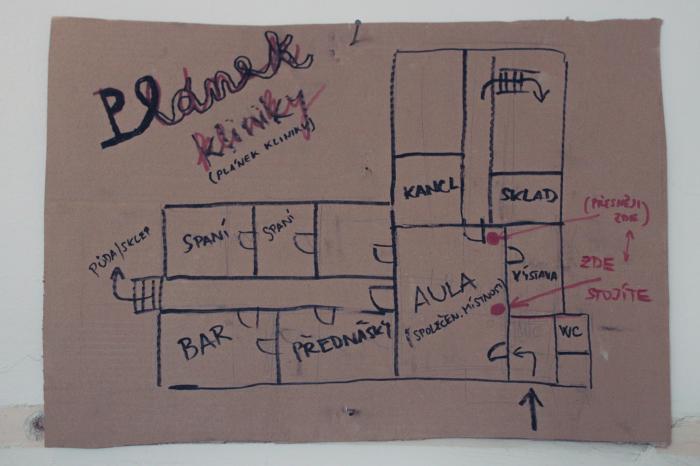 Plánek
kliniky
(PLÁNEK KLINIKY)
KANCL
SKLAD
(PŘESNĚJI
ZDE)
SPANÍ
SPANÍ
PŮDA/SKLEP
VÝSTAVA
ZDE
STOJÍTE
AULA
(SPOLEČEN. MÍSTNOST)
BAR
PŘEDNÁŠKY
WC